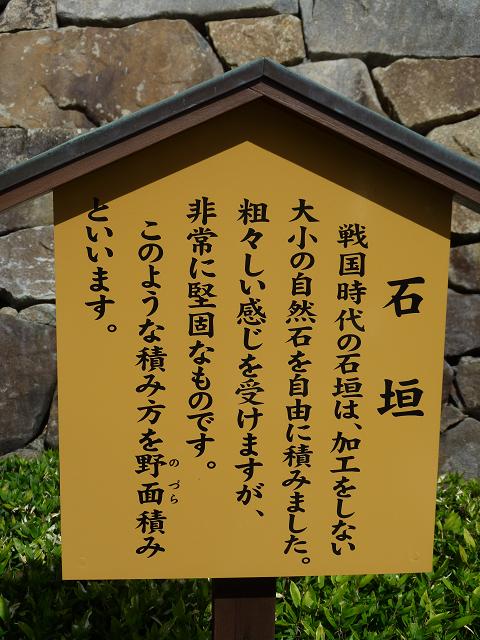 石垣
戦国時代の石垣は、加工をしない
大小の自然石を自由に積みました。
粗々しい感じを受けますが、
非常に堅固なものです。
このような積み方を野面積み
のづら
といいます。